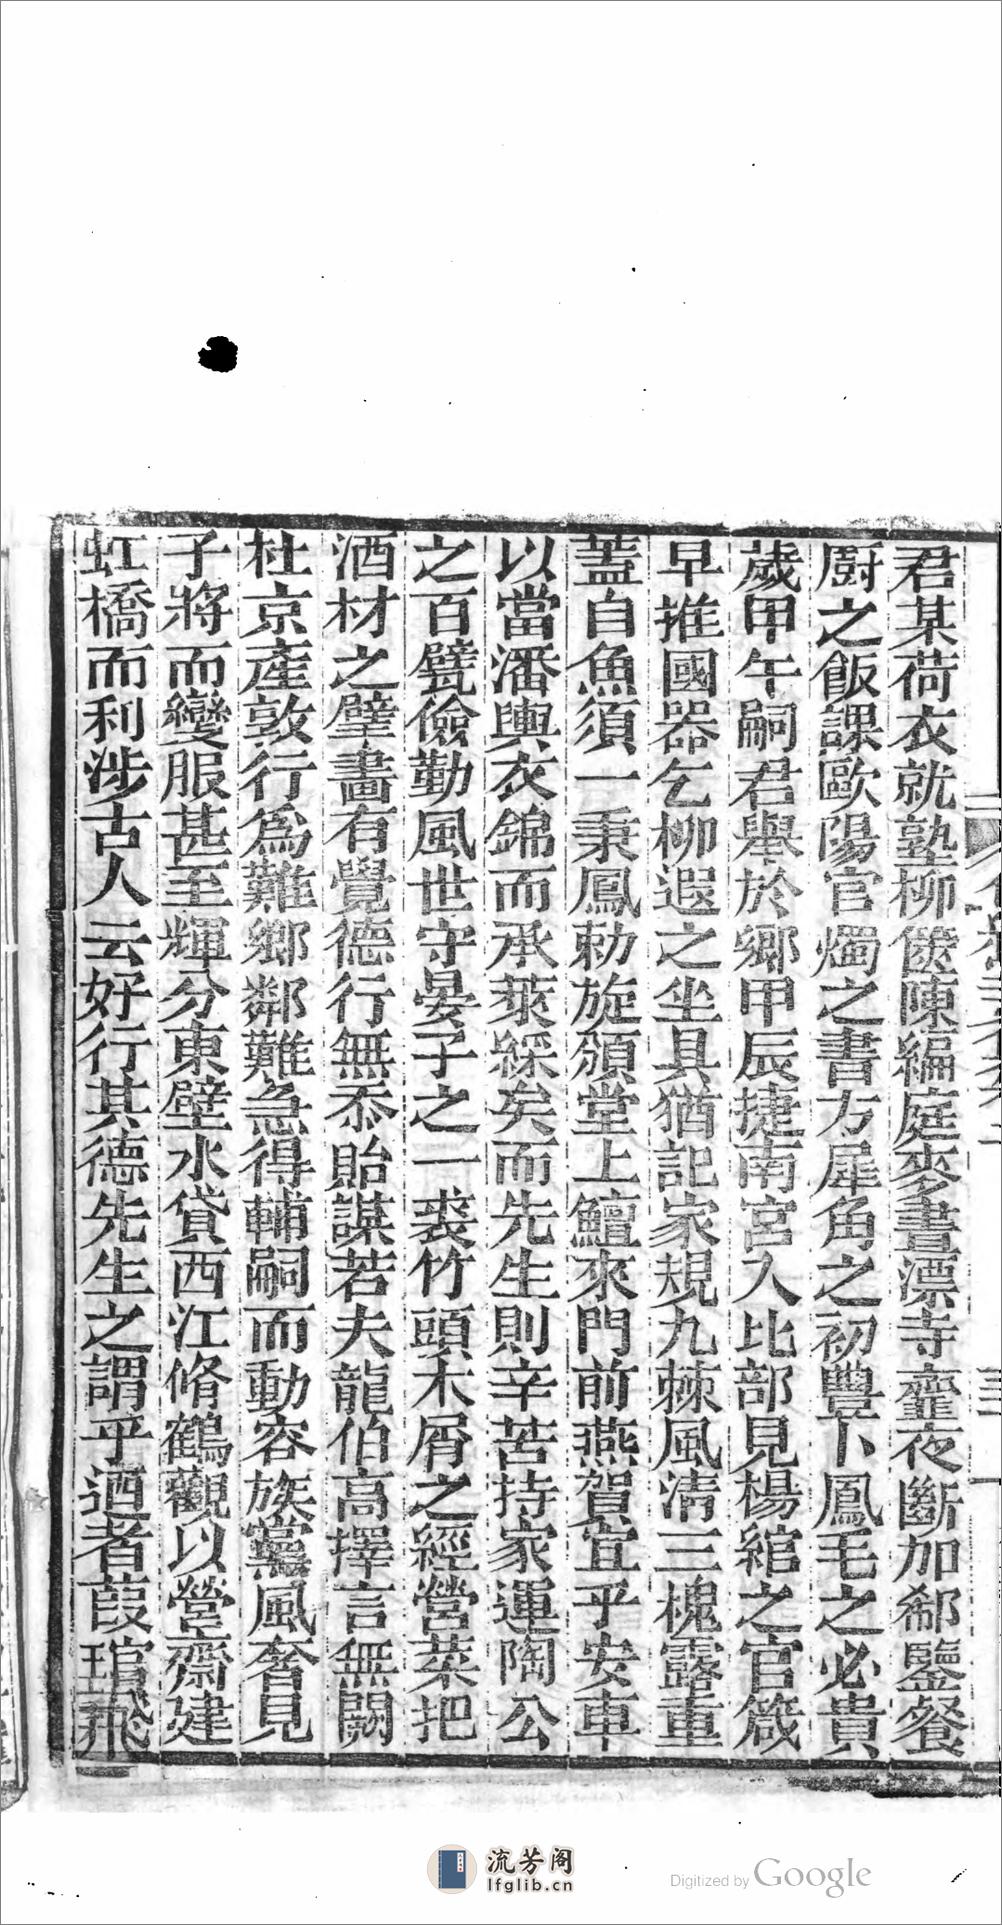 君某荷衣就塾柳篋陳編庭麥晝漂寺虀夜斷加郗鑒餐
廚之飯課歐陽官燭之書方犀角之初豐卜鳳毛之必貴
歲甲午嗣君舉於鄉甲辰捷南宮入比部見楊綰之官箴
早推國器乞柳遐之坐具猶記家規九棘風清三槐露重
蓋自魚須一秉鳳勅旋頒堂上鱣來門前燕賀宜乎安車
以當潘輿衣錦而承萊綵矣而先生則辛苦持家運陶公
之百甓儉勤風世守晏子之一裘竹頭木屑之經營菜把
酒材之擘畫有覺德行無忝貽謀若夫龍伯高擇言無闕
杜京產敦行為難鄉鄰難急得輔嗣而動容族黨風奢見
子將而變服甚至輝分東壁水貸西江脩鶴觀以營齋建
虹橋而利涉古人云好行其德先生之謂乎迺者葭琯飛
流芳阁
lfglib.cn
Digitized by Google